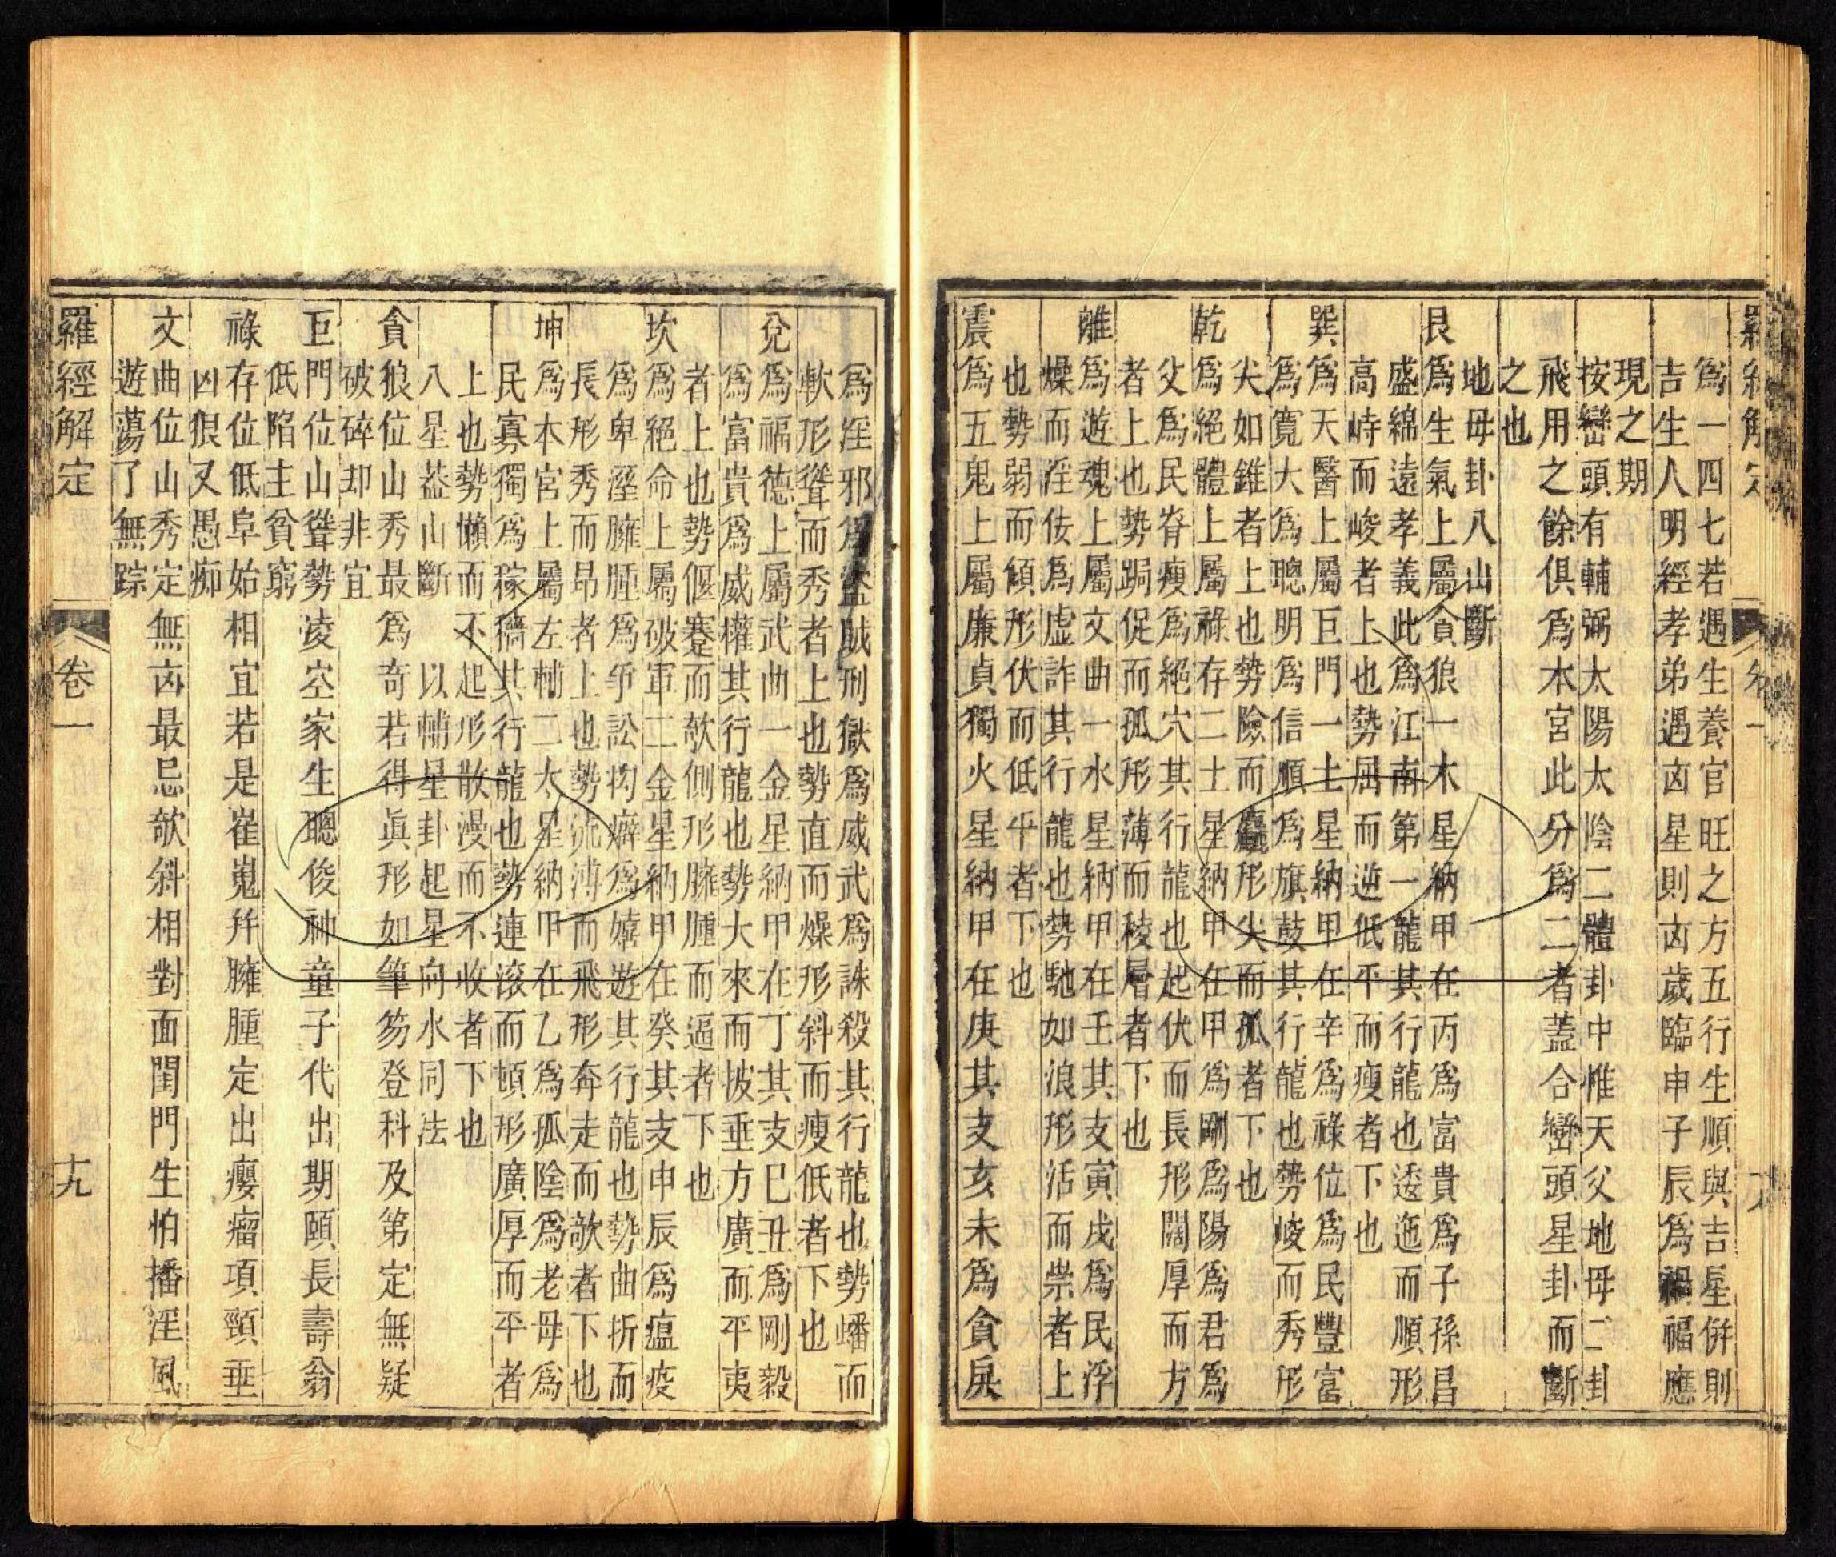 羅經解定
卷一
爲一四七若遇生養官旺之方五行生順與吉星併則
吉生人明經孝弟遇凶星則凶歲臨申子辰爲禍福應
現之期
按巒頭有輔弼太陽太陰二體卦中惟天父地母二卦
飛用之餘俱爲本宮此分爲二者蓋合巒頭星卦而斷
之也
地母卦八山斷
艮爲生氣上屬貪狼一木星納甲在丙爲富貴爲子孫昌
盛綿遠孝義此爲江南第一龍其行龍也逶迤而順形
高峙而峻者上也勢屈而逆低平而瘦者下也
巽爲天醫上屬巨門一土星納甲在辛爲祿位爲民豐富
爲寬大爲聰明爲信順爲旗鼓其行龍也勢峻而秀形
尖如錐者上也勢險而麤形尖而孤者下也
乾爲絕體上屬祿存二土星納甲在甲爲剛爲陽爲君爲
父爲民脊瘦爲絕穴其行龍也起伏而長形闊厚而方
者上也勢跼促而孤形薄而稜層者下也
離爲遊魂上屬文曲一水星納甲在壬其支寅戌爲民浮
燥而淫佞爲虛詐其行龍也勢馳如浪形活而崇者上
也勢弱而傾形伏而低平者下也
震爲五鬼上屬廉貞獨火星納甲在庚其支亥未爲貪戾
爲淫邪爲盜賊刑獄爲威武爲誅殺其行龍也勢蟠而
軟形聳而秀者上也勢直而燥形斜而瘦低者下也
兌爲福德上屬武曲一金星納甲在丁其支巳丑爲剛毅
爲富貴爲威權其行龍也勢大來而披垂方廣而平夷
者上也勢偃蹇而欹側形臃腫而逼者下也
坎爲絕命上屬破軍二金星納甲在癸其支申辰爲瘟疫
爲卑溼臃腫爲爭訟拘癖爲嬉遊其行龍也勢曲折而
長形秀而昂者上也勢流溥而飛形奔走而欹者下也
坤爲本宮上屬左輔二太星納甲在乙爲孤陰爲老母爲
民寡獨爲稼穡其行龍也勢連滚而頓形廣厚而平者
上也勢懶而不起形散漫而不收者下也
八星葢山斷　以輔星卦起星向水同法
貪狼位山秀最爲奇若得眞形如筆笏登科及第定無疑
破碎却非宜
巨門位山聳勢凌空家生聰俊神童子代出期頤長壽翁
低陷主貧窮
祿存位低阜始相宜若是崔嵬幷臃腫定出癭瘤項頸垂
凶狠又愚痴
文曲位山秀定無凶最忌欹斜相對面閨門生怕播淫風
遊蕩了無踪
羅經解定
卷一
十九